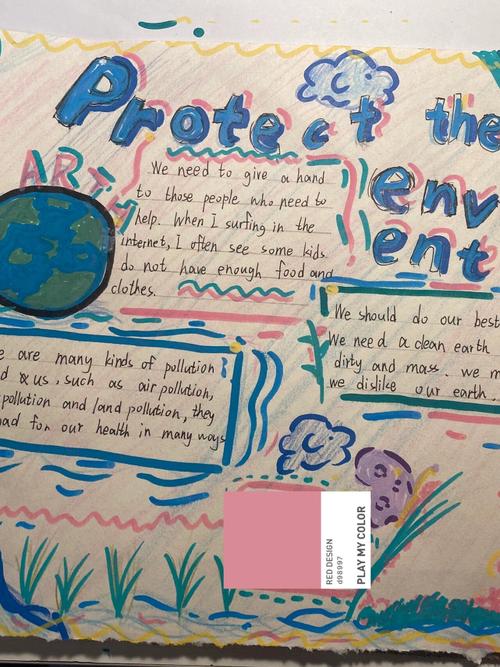 Protect the
env
ent
ART
We need to give a hand
to those people who need to
help. When I surfing in the
internet, I often see some kids
do not have enough food and
clothes.
We should do our best
We need a clean earth
dirty and mass.. we m
we dislike our earth.
e are many kinds of pollution
d us, such as air pollution,
pollution and land pollution, they
ad for our health in many ways
RED DESIGN
d98997
PLAY MY COLOR